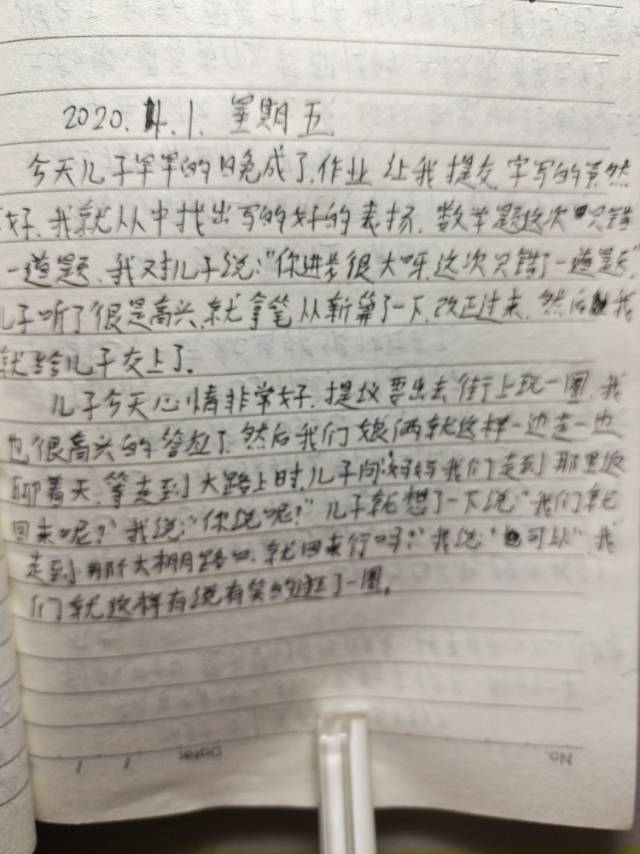 2020.4.1. 星期五.
今天儿子早早的日完成了作业 让我提交字写的竟然
好.我就从中找出写的好的表扬.数学题这次只错
一道题.我对儿子说:"你进步很大呀.这次只错了一道题"
儿子听了很是高兴.就拿笔从新算了一下.改正过来.然后我
就给儿子交上了.
儿子今天心情非常好.提议要出去街上玩一圈.我
也很高兴的答应了.然后我们娘俩就这样一边走一边
聊着天.等走到大路上时.儿子问妈妈我们走到那里返
回来呢?"我说:"你说呢?"儿子就想了一下说:"我们就
走到那个大棚路口.就回来行吗?"我说:"可以"我
们就这样有说有笑的逛了一圈.
No.
Date